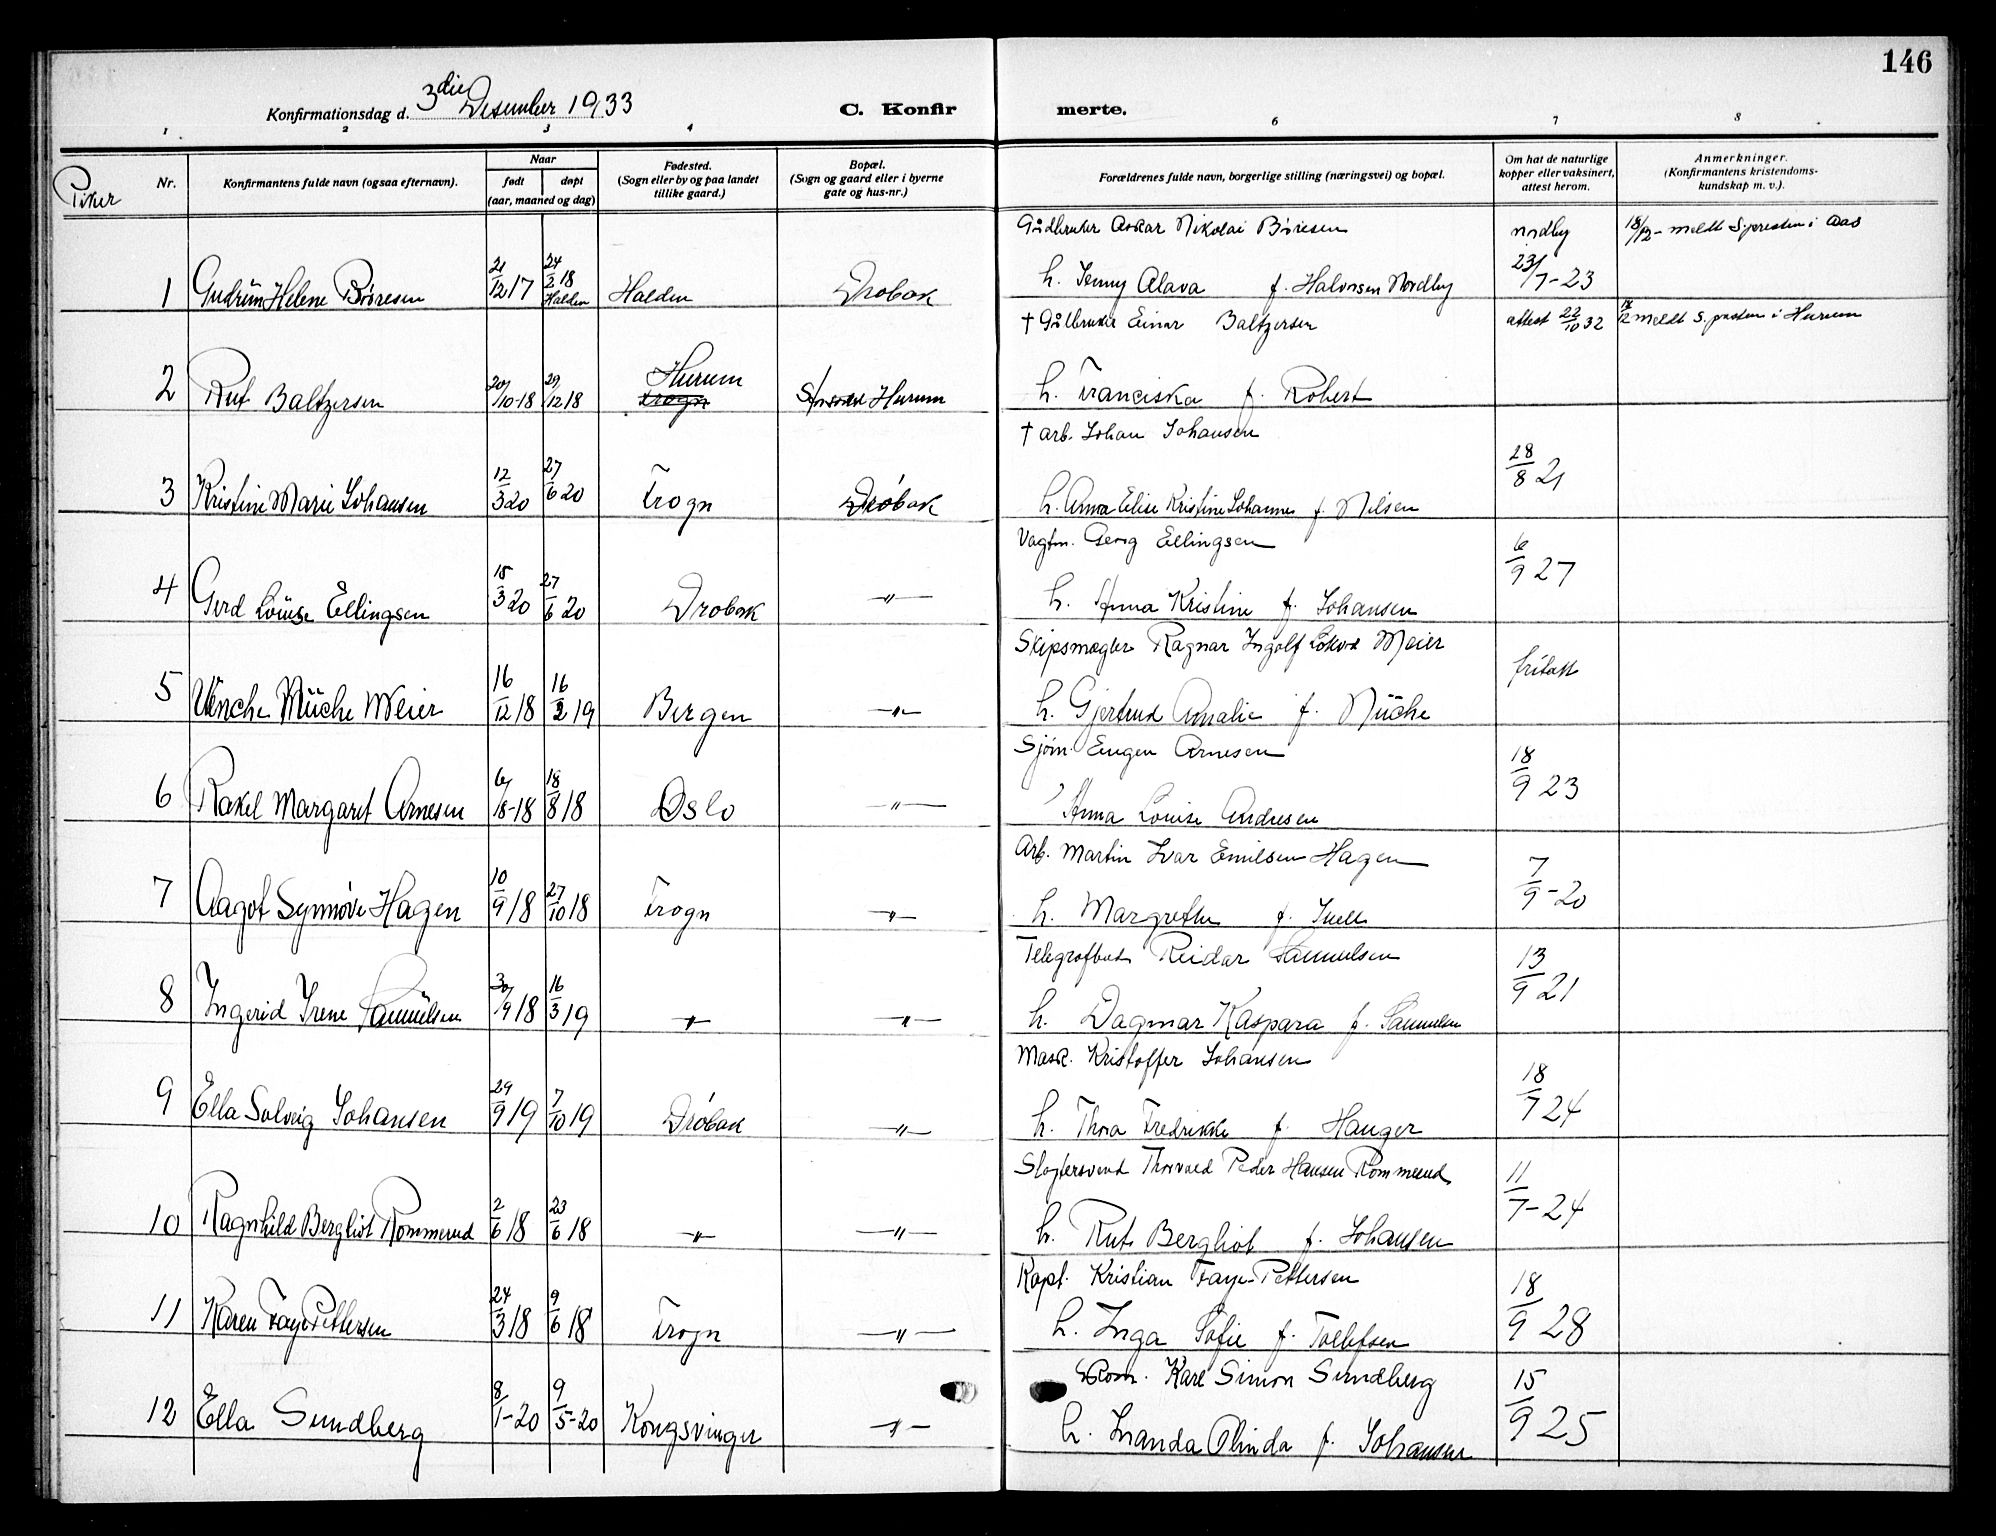 146
Konfirmationsdag d. 3die Desember 1933
C. Konfirmerte.
1 2 3 4 5 6 7 8
Piker
Nr.
Konfirmantens fulde navn (ogsaa efternavn).
Naar
født
døpt
(aar, maaned og dag)
Fødested.
(Sogn eller by og paa landet
tillike gaard.)
Bopæl.
(Sogn og gaard eller i byerne
gate og hus-nr.)
Forældrenes fulde navn, borgerlige stilling (næringsvei) og bopæl.
Om hat de naturlige
kopper eller vaksinert,
attest herom.
Anmerkninger.
(Konfirmantens kristendoms-
kundskap m. v.).
Gårdbruker Oskar Nikolai Børresen nordby 18/12 - meldt S.presten i Aas
1 Gudrun Helene Børresen 21/12 17 24/2 18 Halden Halden Drøbak h. Jenny Alava f. Halvorsen Nordby 23/7-23
† Gålbruker Einar Baltzersen attest 22/10 32 18/12 meldt S.presten i Hurum
2 Rut Baltzersen 20/10-18 29/12 18 Hurum Frogn Hurum h. Franciska f. Robert
† arb. Johan Johansen
3 Kristine Marie Johansen 12/3 20 27/6 20 Frogn Drøbak h. Anna Elise Kristine Johanne f. Nilsen 28/8 21
Vagtm. Georg Ellingsen
4 Gerd Louise Ellingsen 15/3 20 27/6 20 Drøbak -"- h. Anna Kristine f. Johansen 6/9 27
Skipsmægler Ragnar Ingolf Meier
5 Wenche Müche Meier 16/12 18 16/2 19 Bergen -"- h. Gjertrud Amalie f. Müche fritatt
Sjøm. Eugen Arnesen
6 Rakel Margaret Arnesen 6/8-18 18/8 18 Oslo -"- Anna Louise Andresen 18/9 23
Arb. Martin Ivar Emilsen Hagen
7 Aagot Synnøve Hagen 10/9 18 27/10 18 Frogn -"- h. Margrethe f. Juell 7/9-20
Telegrafbud Reidar Samuelsen
8 Ingerid Irene Samuelsen 30/9 18 16/3 19 -"- -"- h. Dagmar Kaspara f. Samuelsen 13/9 21
Mask. Kristoffer Johansen
9 Ella Solveig Johansen 29/9 19 7/10 19 Drøbak -"- h. Thora Fredrikke f. Hauger 18/7 24
Slagtersvend Thorvald Peder Hansen Rommerud
10 Ragnhild Bergliot Rommerud 2/6 18 23/6 18 -"- -"- h. Rut Bergliot f. Johansen 11/7-24
Kapt. Kristian Faye-Pettersen
11 Karen Faye Pettersen 24/3 18 9/6 18 Frogn -"- h. Inga Sofie f. Tollefsen 18/9 28
Karl Simon Sundberg
12 Ella Sundberg 8/1-20 9/5-20 Kongsvinger -"- h. Wanda Olinda f. Johansen 15/9 25